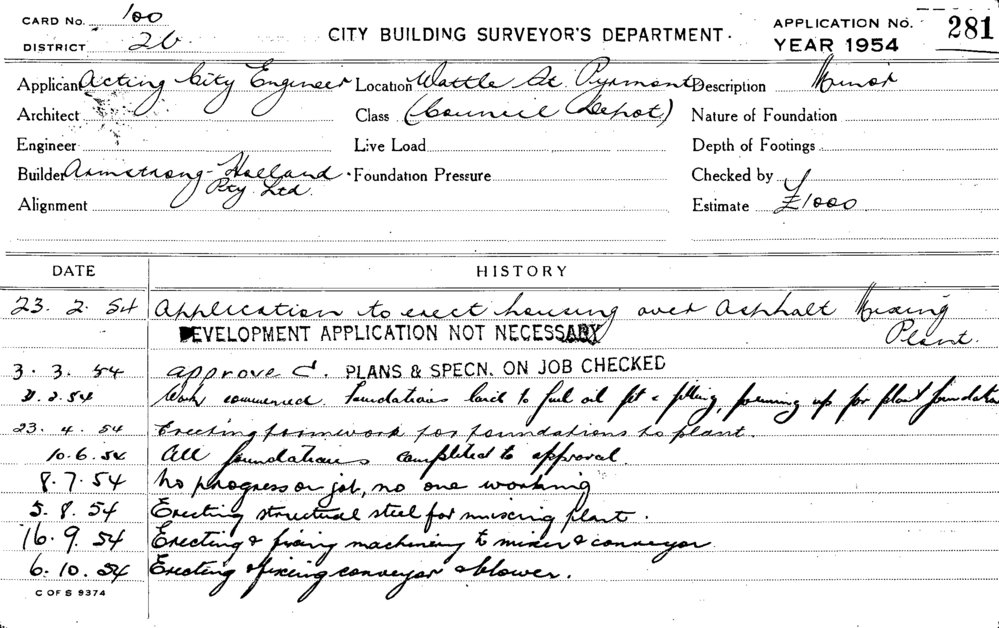 CARD No. 100
DISTRICT 26
CITY BUILDING SURVEYOR'S DEPARTMENT.
APPLICATION No. 281
YEAR 1954
Applicant Acting City Engineer Location Wattle St. Pyrmont Description Minor
Architect Class (Council Depot) Nature of Foundation
Engineer Live Load Depth of Footings
Builder Armstrong-Holland Pty Ltd. Foundation Pressure Checked by
Alignment Estimate £1000
DATE HISTORY
23. 2. 54 Application to erect housing over Asphalt Mixing Plant.
DEVELOPMENT APPLICATION NOT NECESSARY
3. 3. 54 approved. PLANS & SPECN. ON JOB CHECKED
3. 54 Work commenced. Foundations laid to fuel oil pit & filling, forming up for plant foundation
23. 4. 54 Erecting formwork for foundations to plant.
10.6.54 All foundations completed to approval.
8.7.54 No progress on job, no one working
5.8.54 Erecting structural steel for mixing plant.
16.9.54 Erecting & fixing machinery to mixer & conveyor
6.10.54 Erecting & fixing conveyor & blower.
C OF S 9374